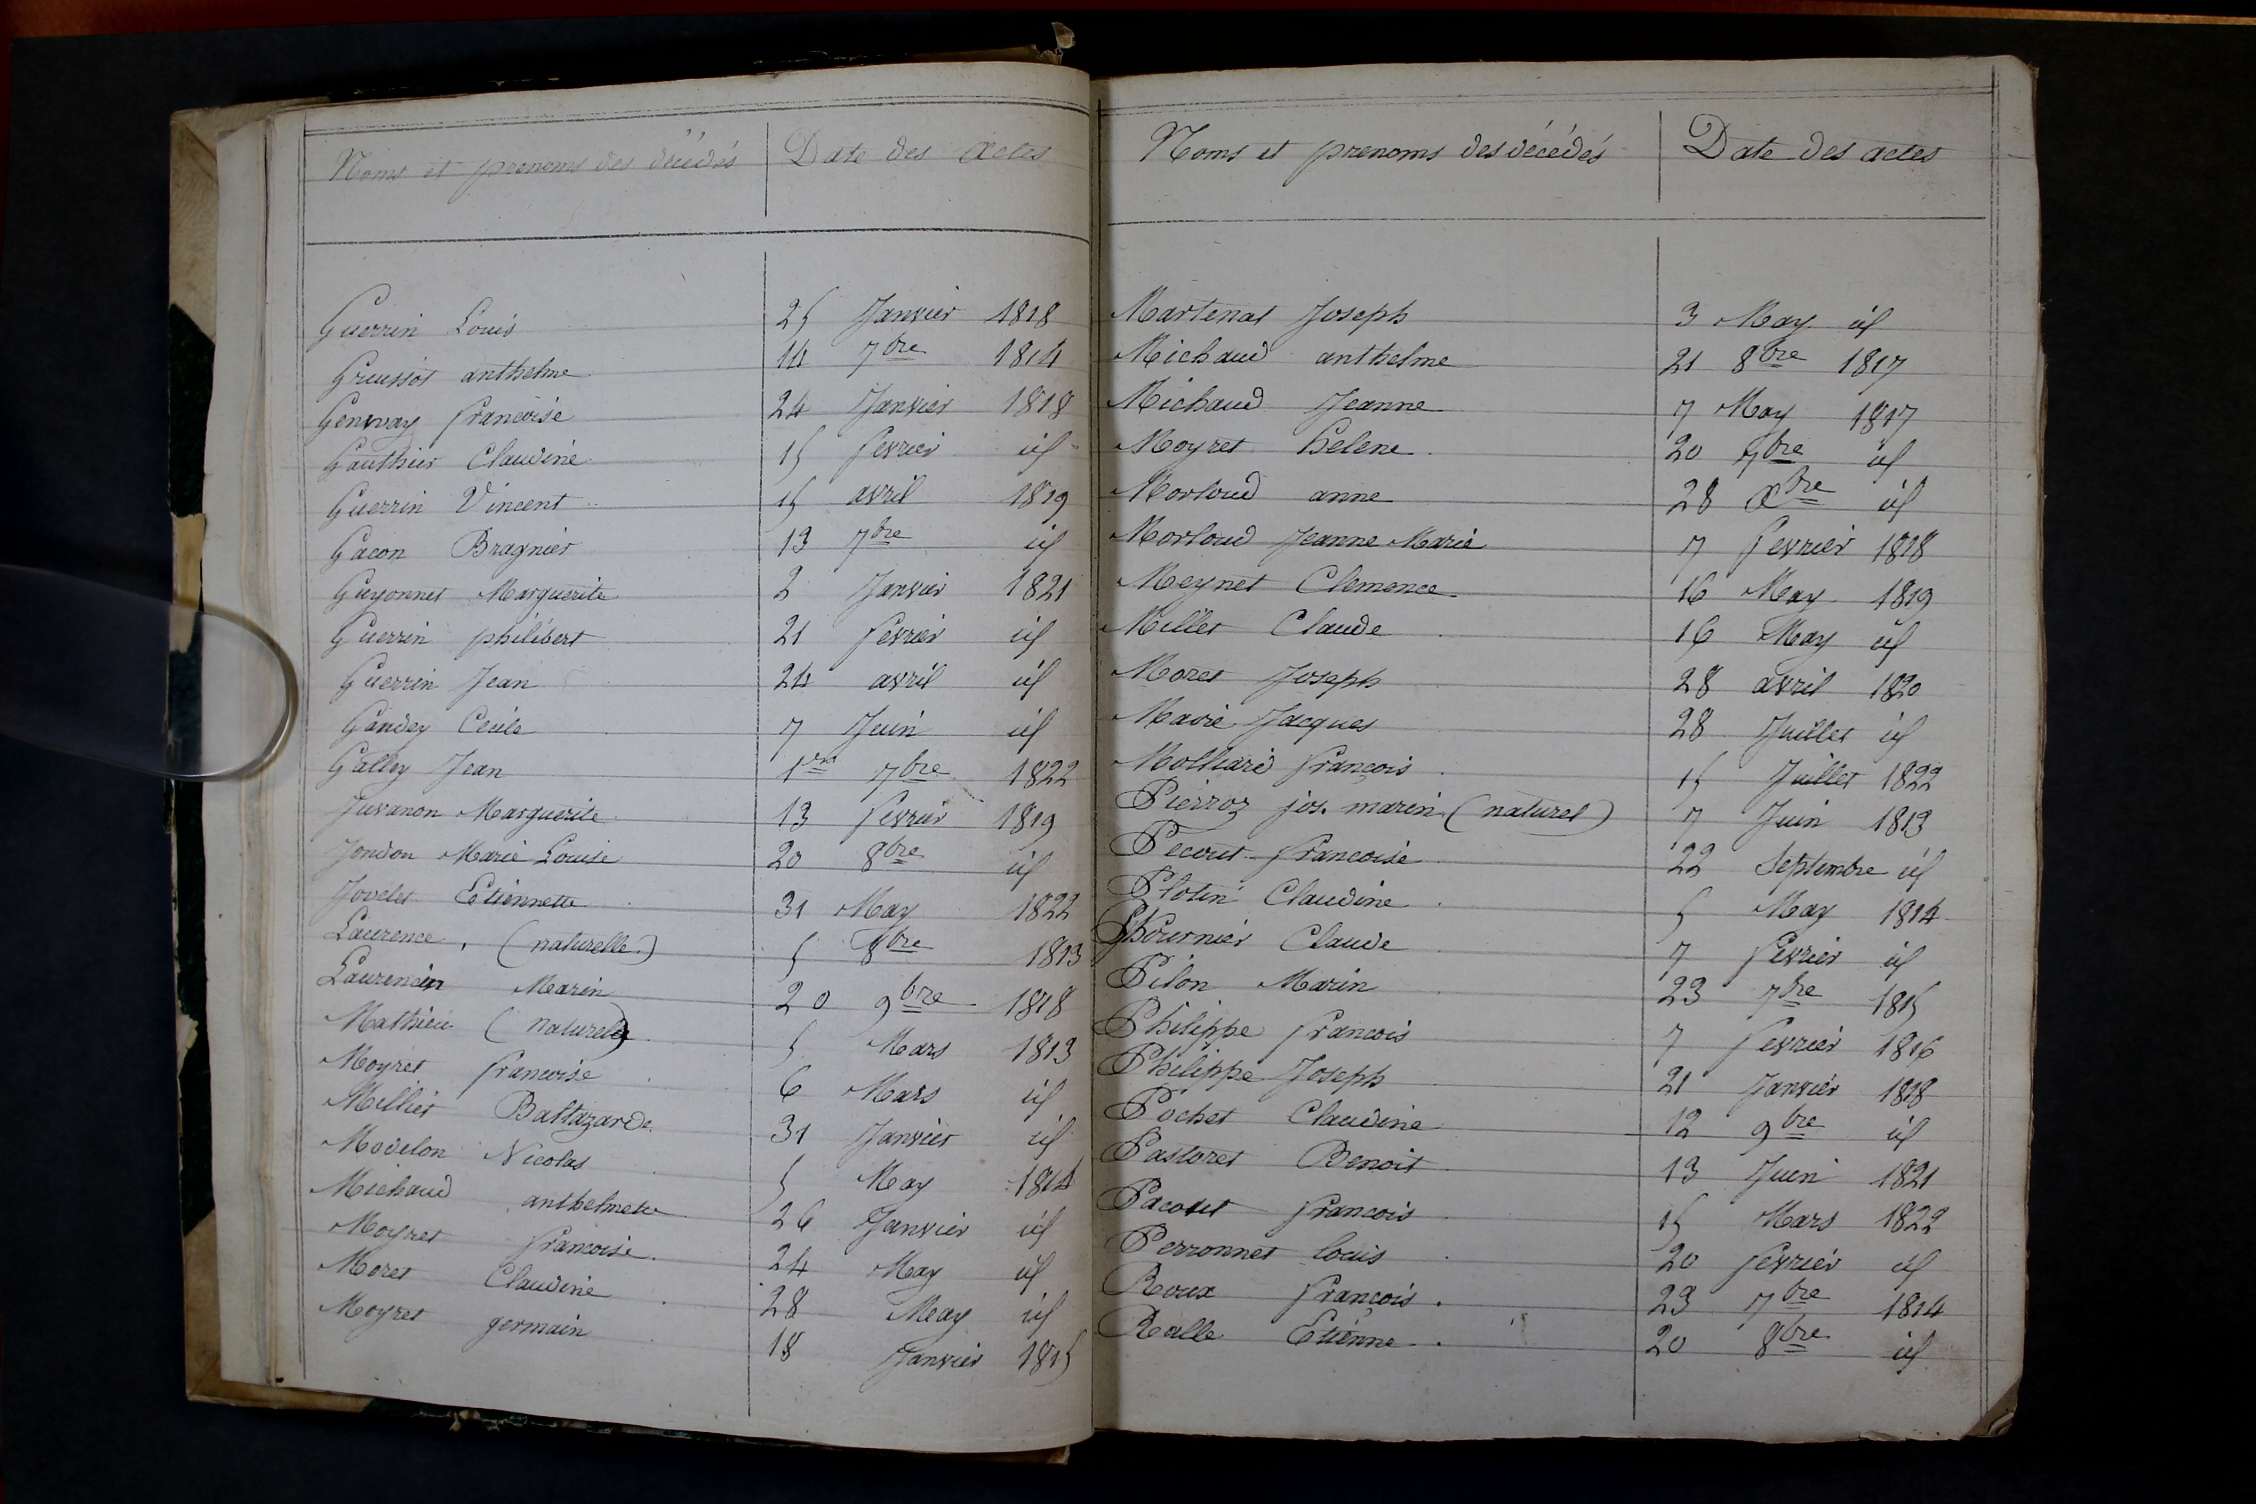 Noms et prenoms des décédés Date des actes
Guerrin Louis 25 Janvier 1818
Grussot anthelme 14 7bre 1814
Genevay francoise 24 Janvier 1818
Gauthier Claudine 15 fevrier id
Guerrin Vincent 15 avril 1819
Gacon Bragnier 13 7bre id
Guyonnet Marguerite 2 Janvier 1821
Guerrin philibert 21 fevrier id
Guerrin Jean 24 avril id
Gandey Cecile 7 Juin id
Galley Jean 1er 7bre 1822
Juvanon Marguerite 13 fevrier 1819
Jondon Marie Louise 20 8bre id
Jovelet Etiennette 31 May 1822
Laurence, (naturelle) 5 8bre 1813
Laurencin Marin 20 9bre 1818
Mathieu (naturel) 5 Mars 1813
Moyret francoise 6 Mars id
Millier Baltazarde 31 Janvier id
Modelon Nicolas 5 May 1814
Michaud anthelmete 26 Janvier id
Moyret francoise 24 May id
Moret Claudine 28 May id
Moyret germain 18 Janvier 1815
Noms et prenoms des décédés Date des actes
Martenat Joseph 3 May id
Michaud anthelme 21 8bre 1817
Michaud Jeanne 7 May 1817
Moyret helene 20 7bre id
Morloud anne 28 Xbre id
Morloud Jeanne Marie 7 fevrier 1818
Meynet Clemence 16 May 1819
Millet Claude 16 May id
Moret Joseph 28 avril 1820
Marie Jacques 28 Juillet id
Molliard françois 15 Juillet 1822
Pierroz jos. marin (naturel) 7 Juin 1813
Pecout francoise 22 Septembre id
Plotin Claudine 5 May 1814
Claude 7 fevrier id
Pilon Marin 23 7bre 1815
Philippe francois 7 fevrier 1816
Philippe Joseph 21 Janvier 1818
Pochet Claudine 12 9bre id
Pastoret Benoit 13 Juin 1821
Pacout francois 15 Mars 1822
Perronnet louis 20 fevrier id
Roux françois. 23 7bre 1814
Ralle Etienne. 20 8bre id